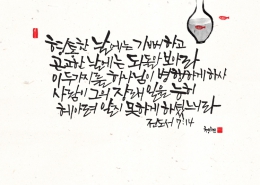 형통한 날에는 기뻐하고
곤고한 날에는 되돌아 보아라
이 두가지를 하나님이 병행하게 하사
사람이 그의 장래 일을 능히
헤아려 알지 못하게 하셨느니라
전도서 7:14